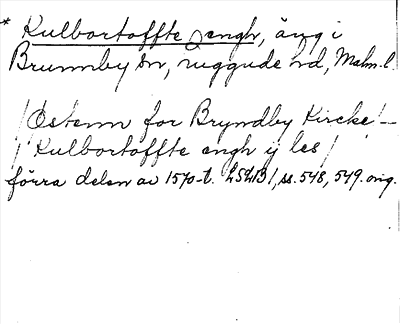 * Kulbortoffte engh, äng i
Brunnby sn, Luggude hd, Malm. l.
/Östenn for Bryndby Kircke –
/ Kulbortoffte engh ij les /
förra delen av 1570-t. LSLB1, ss. 548, 549. orig.